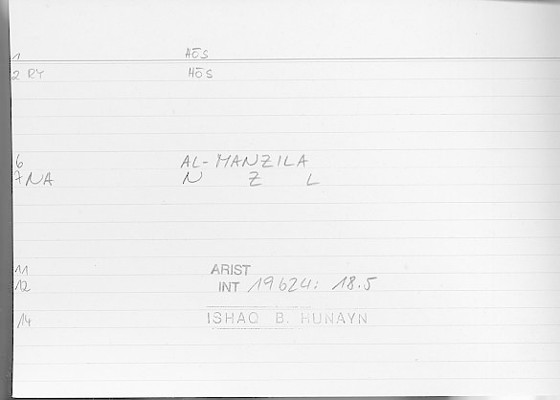 1 AŌS
2 RY HŌS
6 AL-MANZILA
7 NA N Z L
11 ARIST
12 INT 19624: 18.5
14 ISHAQ B. HUNAYN